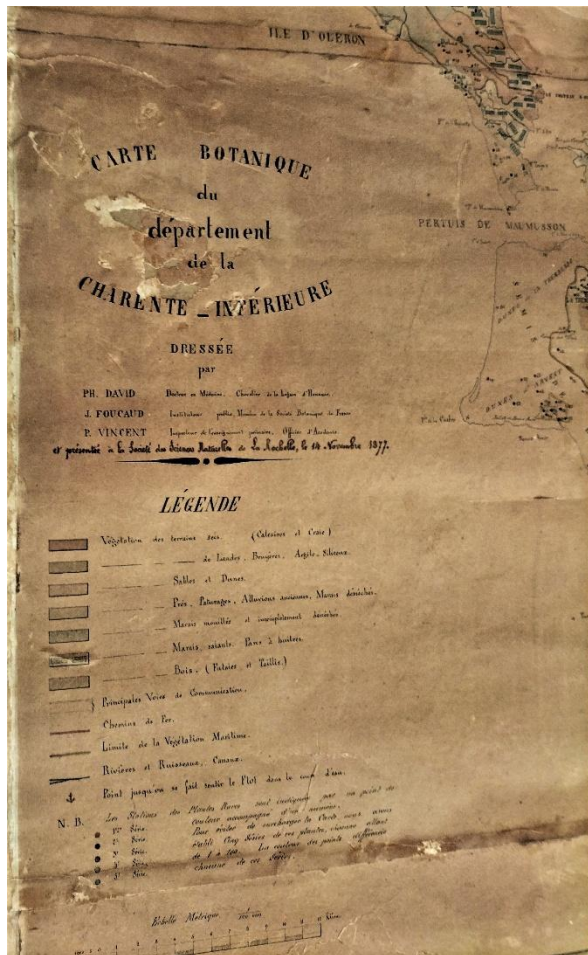 ILE D'OLERON
CARTE BOTANIQUE
du
département
de la
CHARENTE - INFÉRIEURE
DRESSÉE
par
PH. DAVID Docteur en Médecine, Chevalier de la Légion d'Honneur
J. FOUCAUD Instituteur public, Membre de la Société Botanique de France
P. VINCENT Inspecteur de l'enseignement primaire, Officier d'Académie
et présentée à la Société des Sciences Naturelles de La Rochelle, le 14 Novembre 1877.
PERTUIS DE MAUMUSSON
LÉGENDE
Végétation des terrains secs. (Calcaires et Craie)
de Landes, Bruyères, Argilo-Siliceux.
Sables et Dunes.
Prés, Paturages, Alluvions anciennes, Marais désséchés.
Marais mouillés et incomplètement désséchés
Marais salants. Parcs à huîtres.
Bois, (Futaies et Taillis.)
Principales Voies de Communication.
Chemins de Fer.
Limite de la Végétation Maritime.
Rivières et Ruisseaux, Canaux.
Point jusqu'où se fait sentir le Flot dans le cours d'eau.
N. B. Les Stations des Plantes Rares sont indiquées par un point de
couleur accompagné d'un numéro.
1re Série. Pour éviter de surcharger la Carte, nous avons
2e Série. établi Cinq Séries de ces plantes, chacune allant
3e Série. de 1 à 100. La couleur des points différencie
4e Série. chacune de ces Séries.
5e Série.
Echelle Métrique